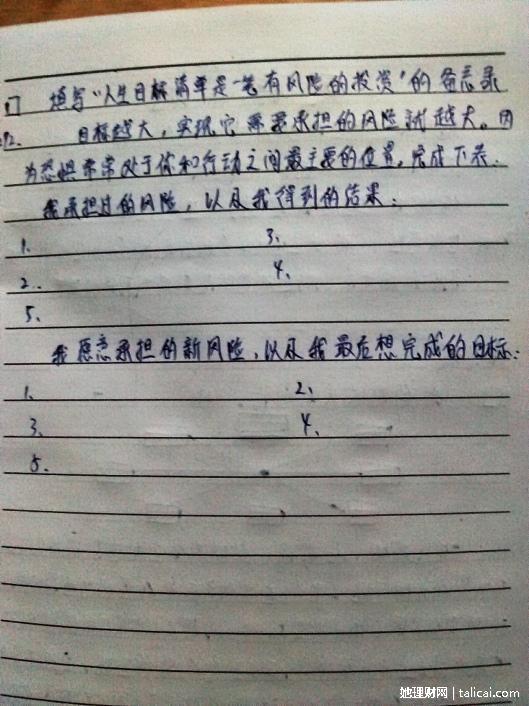 填写“人生目标清单是一笔有风险的投资”的备忘录
目标越大，实现它需要承担的风险就越大。因
为恐惧常常处于你和行动之间最主要的位置，完成下表。
我承担过的风险，以及我得到的结果：
1. 3、
2.. 4、
5、
我愿意承担的新风险，以及我最后想完成的目标：
1. 2、
3、 4、
5.
她理财网 | talicai.com